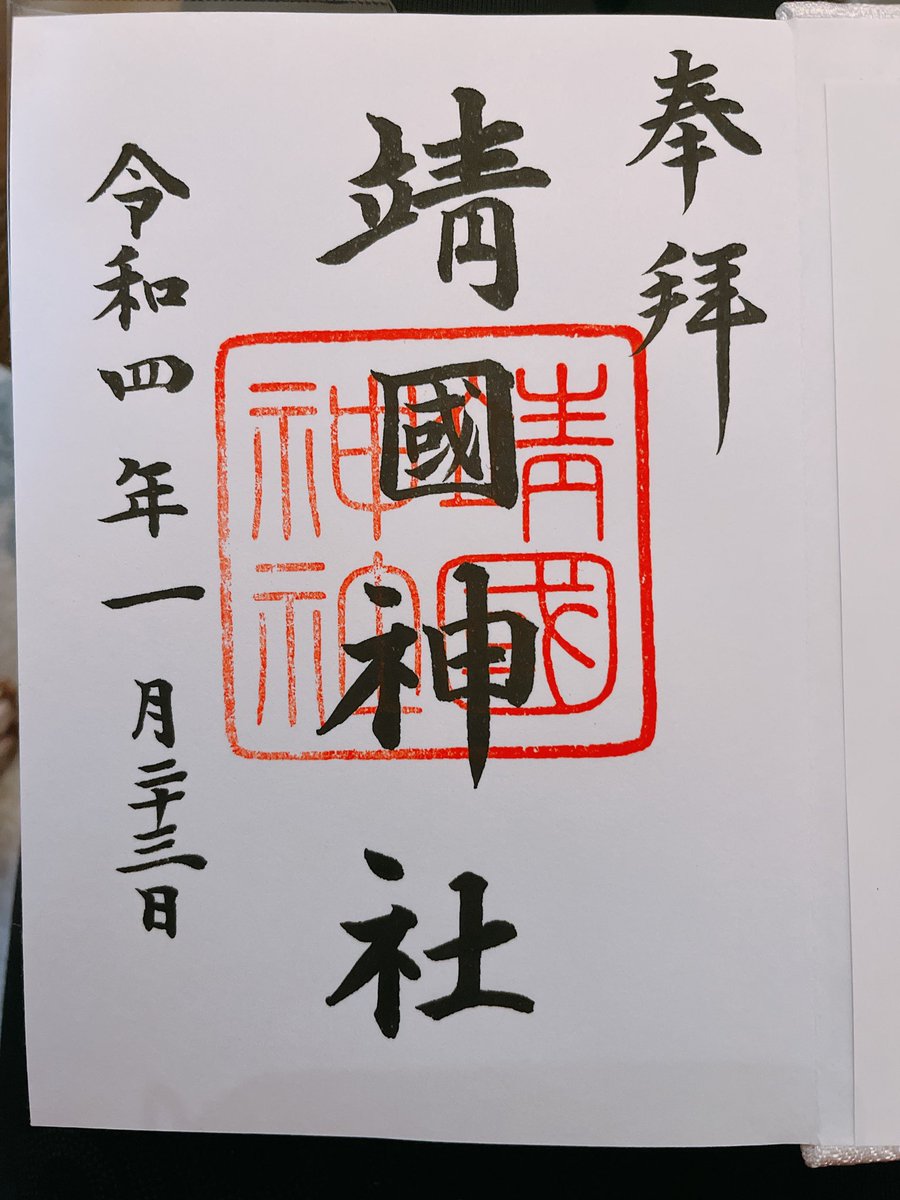 奉拝
靖國神社
令和四年一月二十三日
靖國
神社